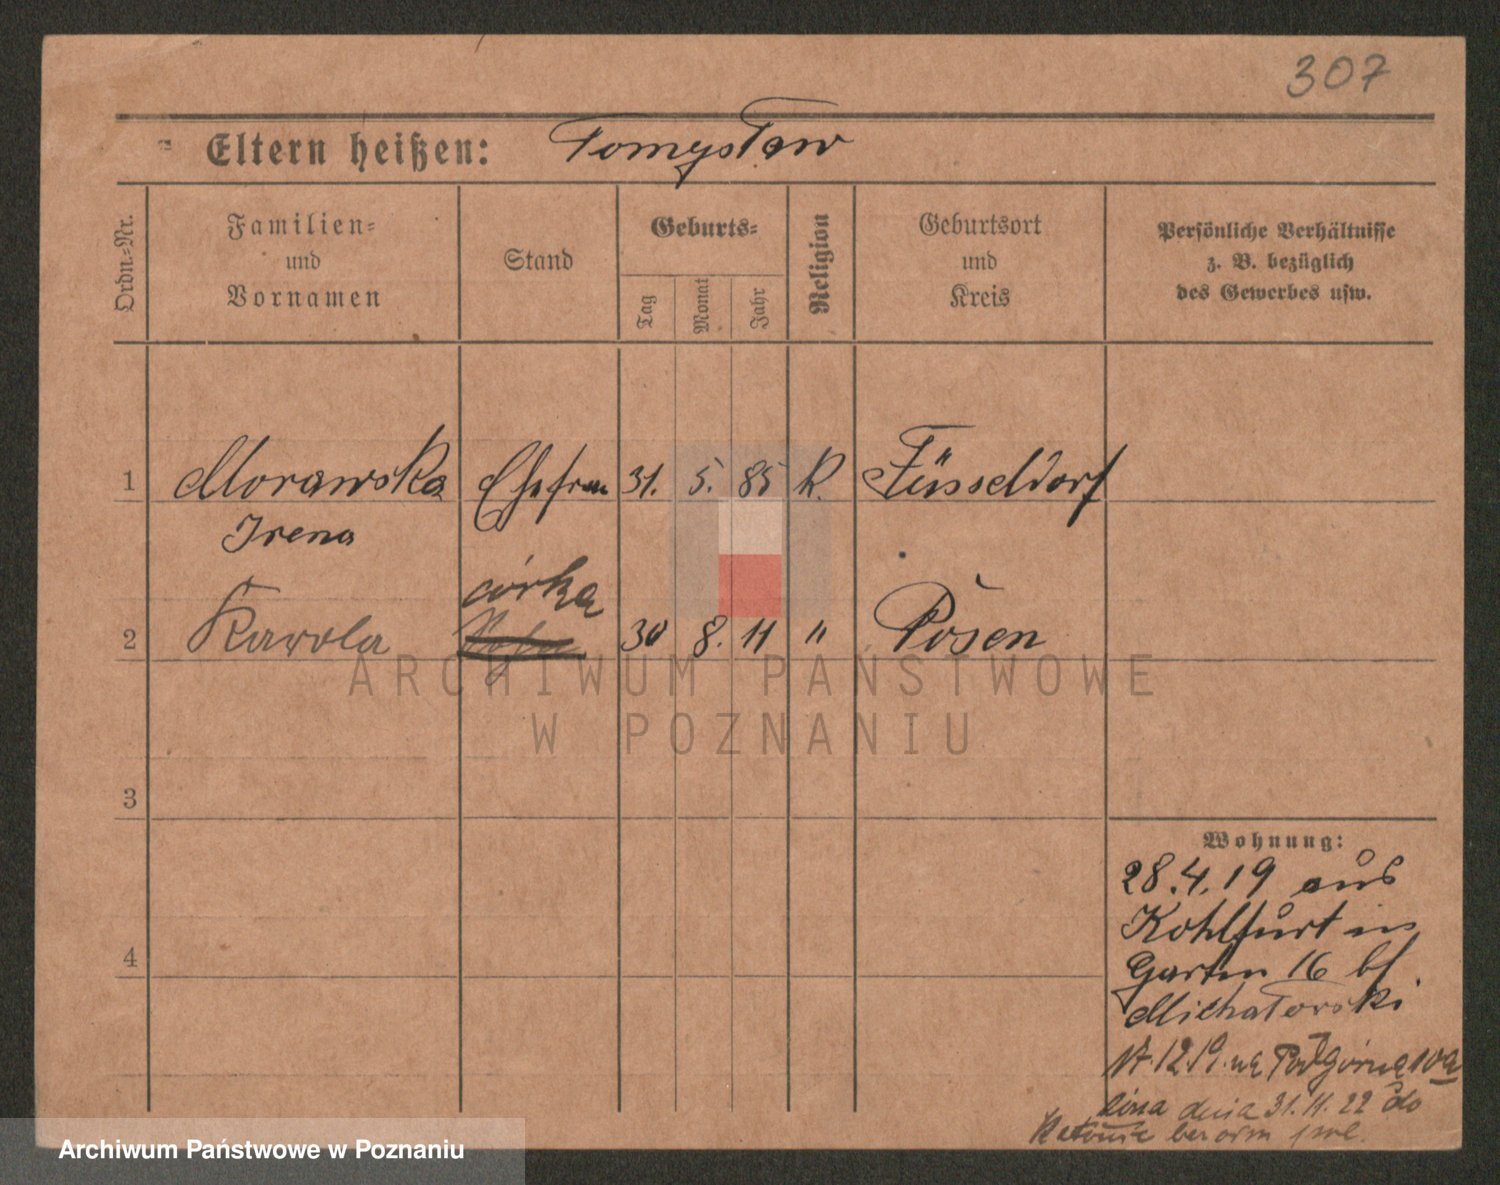 307
Eltern heißen: Tomysław
Ordn.-Nr.
Familien-
und
Vornamen
Stand
Geburts-
Tag
Monat
Jahr
Religion
Geburtsort
und
Kreis
Persönliche Verhältnisse
z. B. bezüglich
des Gewerbes usw.
1 Morawska Ehefrau 31. 5. 85 K. Düsseldorf
Irena
córka
2 Karola 30 8. 11 " Posen
ARCHIWUM PAŃSTWOWE
W POZNANIU
3
Wohnung:
28.4.19 aus
Kohlfurt in
4
Garten 16 bf.
Michałowski
12.19. na Podgórna 10a
dnia 31.11.22 do
Archiwum Państwowe w Poznaniu